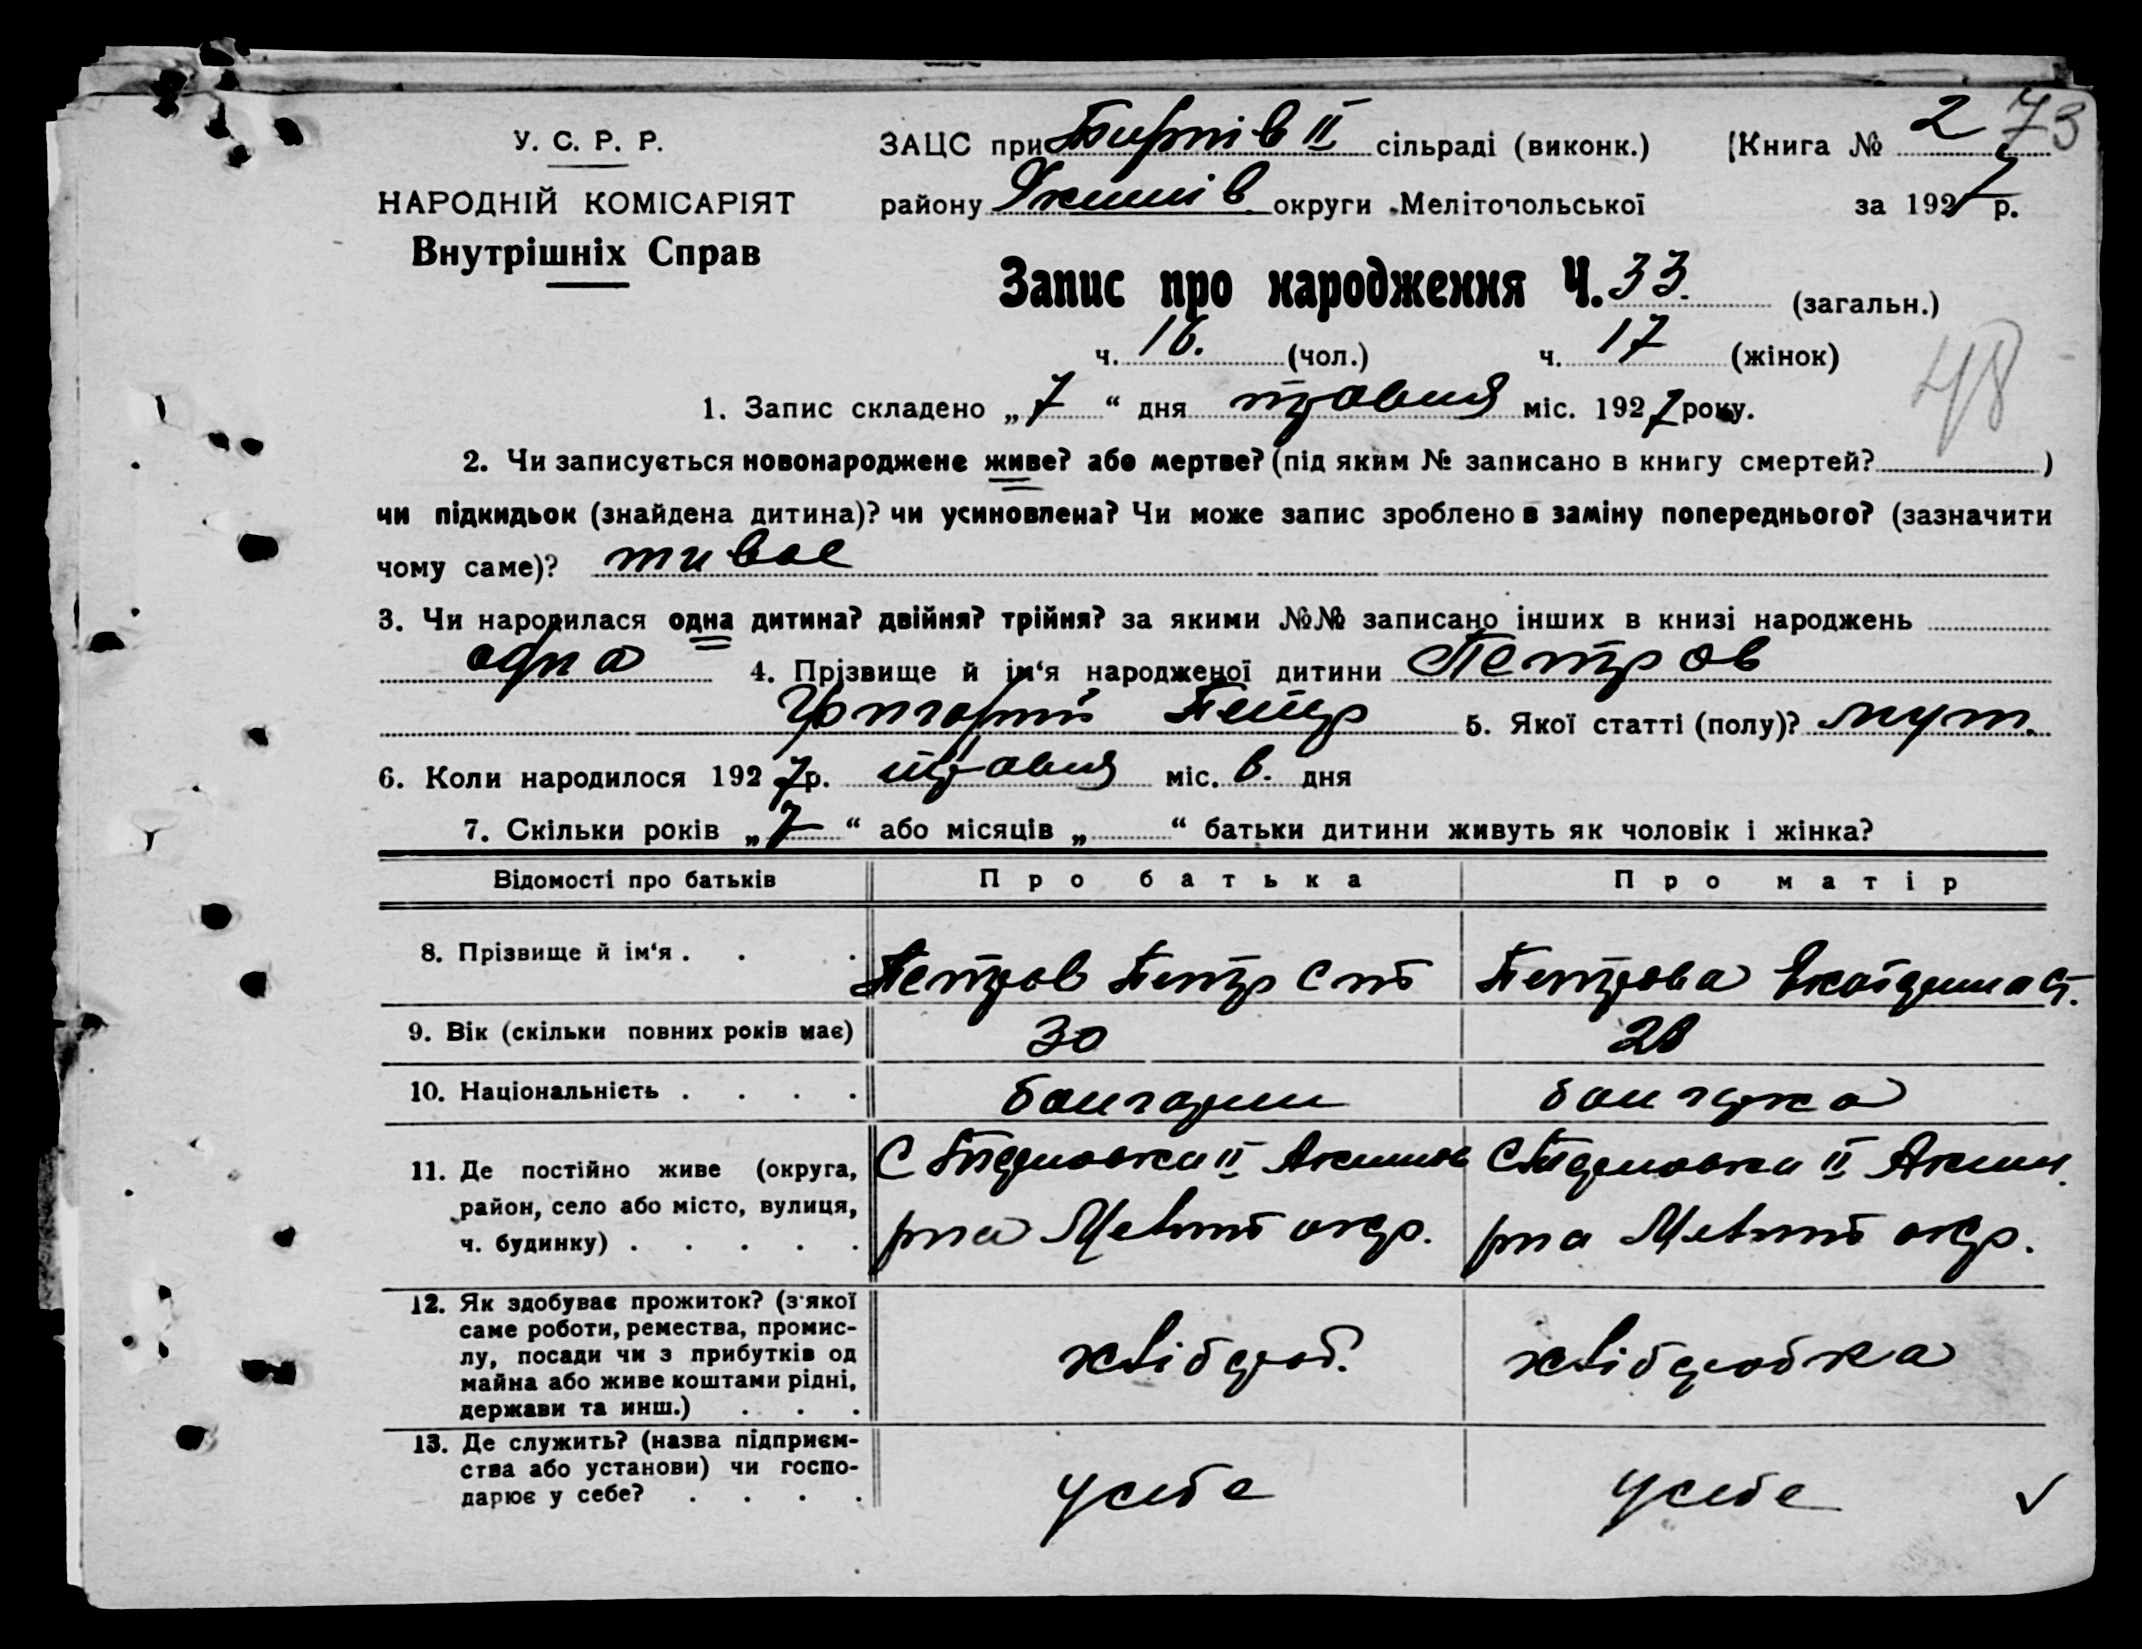 У. С. Р. Р.
НАРОДНІЙ КОМІСАРІЯТ
Внутрішніх Справ
73
ЗАЦС при ІІ сільраді (виконк.) Книга № 2
району Якимів. округи Мелітопольської за 1927 р.
Запис про народження Ч. 33. (загальн.)
ч. 16. (чол.) ч. 17 (жінок)
48
1. Запис складено „7“ дня травня міс. 1927 року.
2. Чи записується новонароджене живе? або мертве? (під яким № записано в книгу смертей? )
чи підкидьок (знайдена дитина)? чи усиновлена? Чи може запис зроблено в заміну попереднього? (зазначити
чому саме)? живое
3. Чи народилася одна дитина? двійня? трійня? за якими №№ записано інших в книзі народжень
одна 4. Прізвище й ім‘я народженої дитини Петров
Петр 5. Якої статті (полу)? муж.
6. Коли народилося 1927 р. травня міс. 6. дня
7. Скільки років „7“ або місяців „ “ батьки дитини живуть як чоловік і жінка?
Відомості про батьків Про батька Про матір
8. Прізвище й ім‘я . . . Петров Петр Петрова
9. Вік (скільки повних років має) 30
10. Національність . . . . болгарин болгарка
11. Де постійно живе (округа, С ІІ Акимов С ІІ Аким.
район, село або місто, вулиця,
ч. будинку) . . . . . р-на Меліт окр. р-на Меліт окр.
12. Як здобуває прожиток? (з якої
саме роботи, ремества, промис-
лу, посади чи з прибутків од хлібороб. хліборобка
майна або живе коштами рідні,
держави та инш.) . . .
13. Де служить? (назва підприєм-
ства або установи) чи госпо-
дарює у себе? . . . . у себе у себе